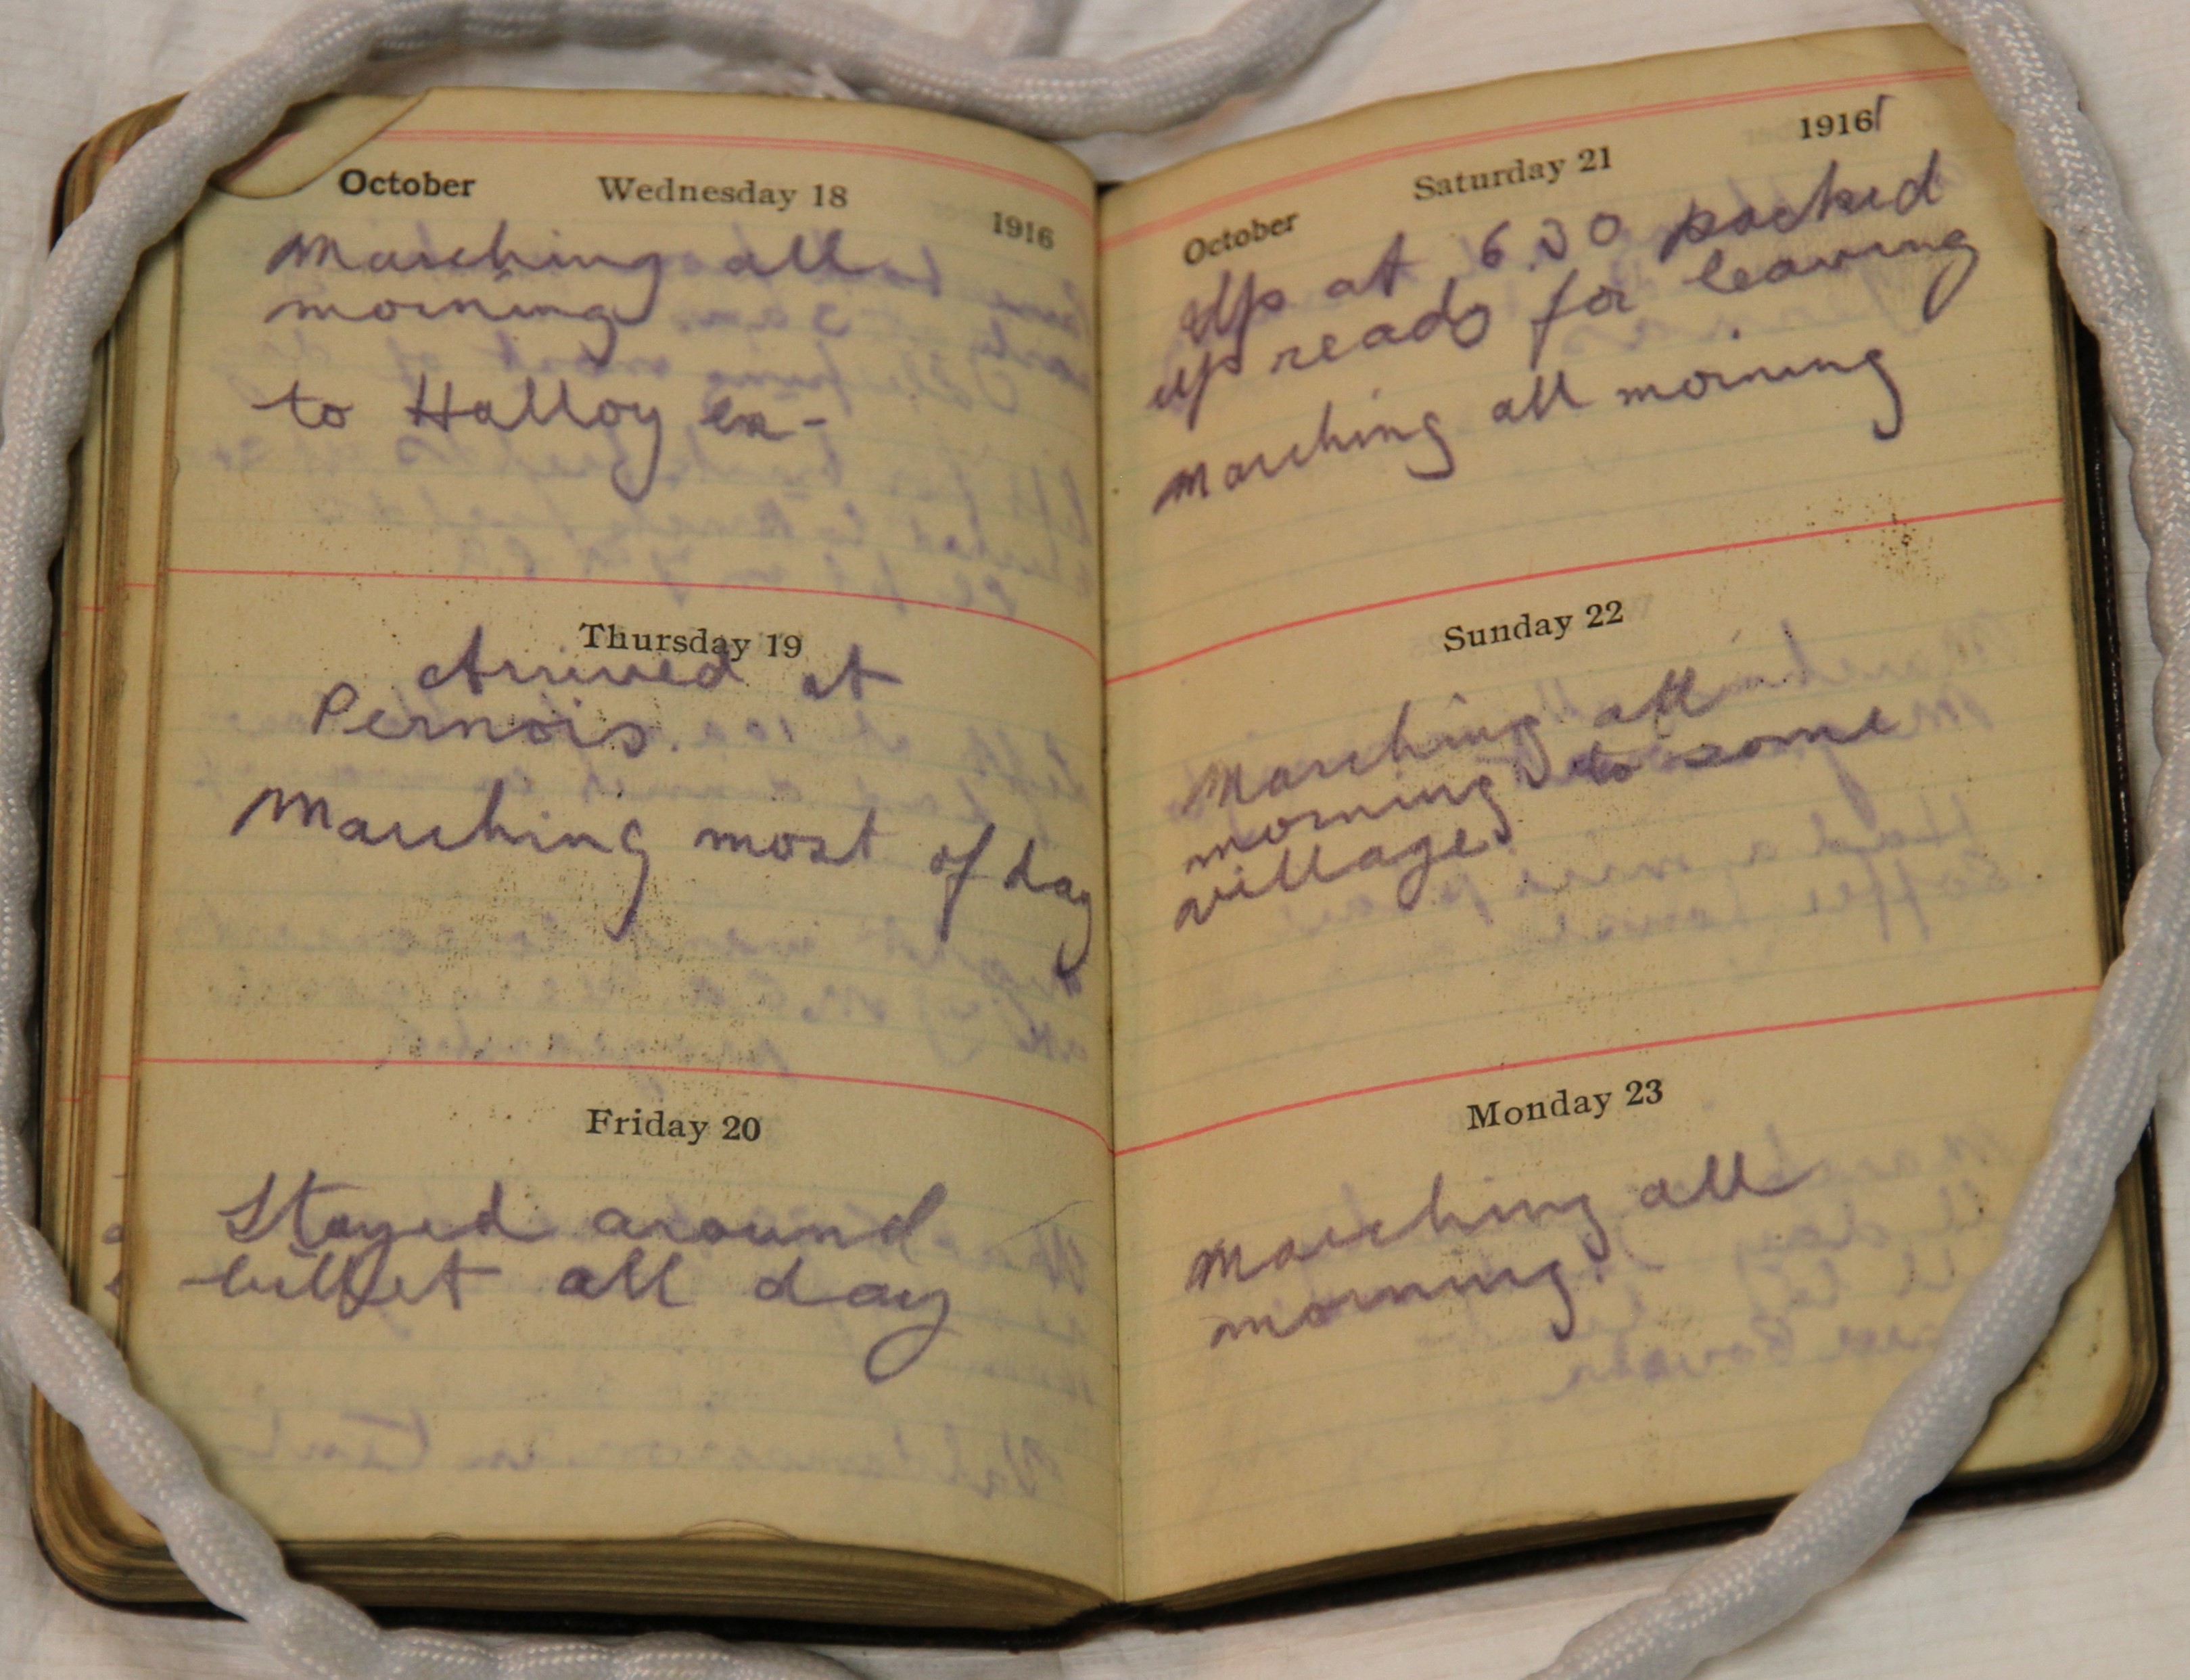 October Wednesday 18 1916
Marching all
morning
to Halloy en-
Thursday 19
Arrived at
Pernois.
Marching most of day
Friday 20
Stayed around
billet all day
October Saturday 21 1916
Up at 6.30 packed
up ready for leaving
Marching all morning
Sunday 22
Marching all
morning to some
village.
Monday 23
Marching all
morning.